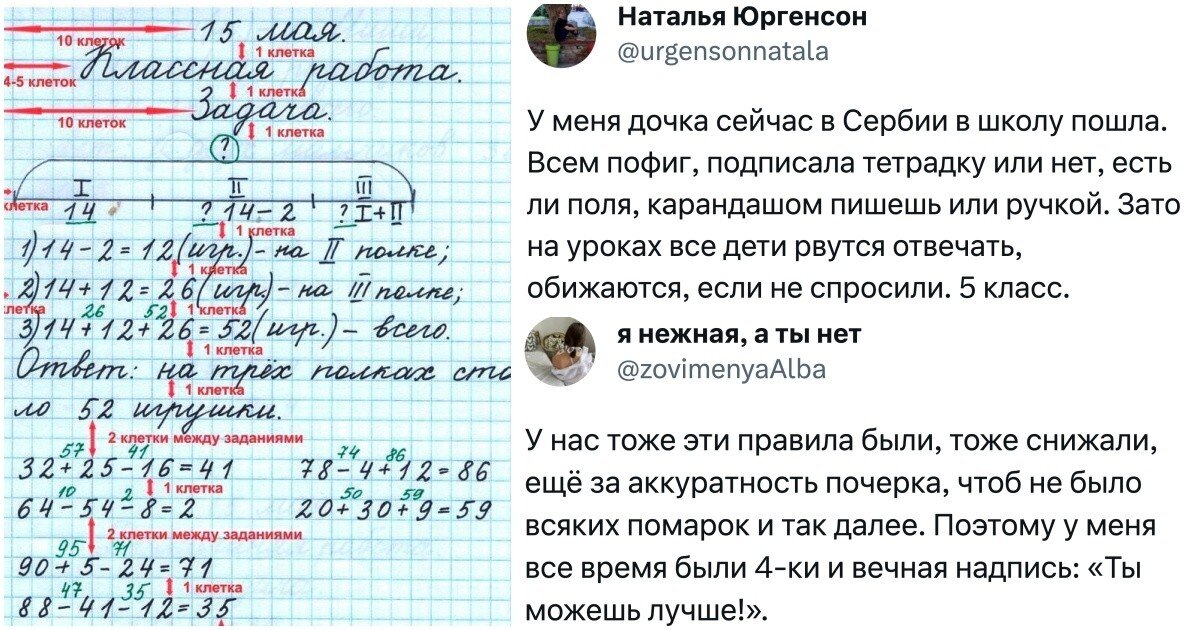 15 мая.
10 клеток
1 клетка
Классная работа.
4-5 клеток
1 клетка
Задача.
10 клеток
1 клетка
?
I II III
14 ? 14-2 ? I+II
клетка
1 клетка
1) 14-2=12(игр.)- на II полке;
1 клетка
2) 14+12=26(игр.)- на III полке;
летка
26 52 1 клетка
3) 14+12+26=52(игр.)- всего.
1 клетка
Ответ: на трёх полках сто
1 клетка
ло 52 игрушки.
2 клетки между заданиями
57 41 74 86
32+25-16=41 78-4+12=86
1 клетка
10 2 50 59
64-54-8=2 20+30+9=59
2 клетки между заданиями
95 71
90+5-24=71
1 клетка
47 35
88-41-12=35
Наталья Юргенсон
@urgensonnatala
У меня дочка сейчас в Сербии в школу пошла.
Всем пофиг, подписала тетрадку или нет, есть
ли поля, карандашом пишешь или ручкой. Зато
на уроках все дети рвутся отвечать,
обижаются, если не спросили. 5 класс.
я нежная, а ты нет
@zovimenyaAlba
У нас тоже эти правила были, тоже снижали,
ещё за аккуратность почерка, чтоб не было
всяких помарок и так далее. Поэтому у меня
все время были 4-ки и вечная надпись: «Ты
можешь лучше!».